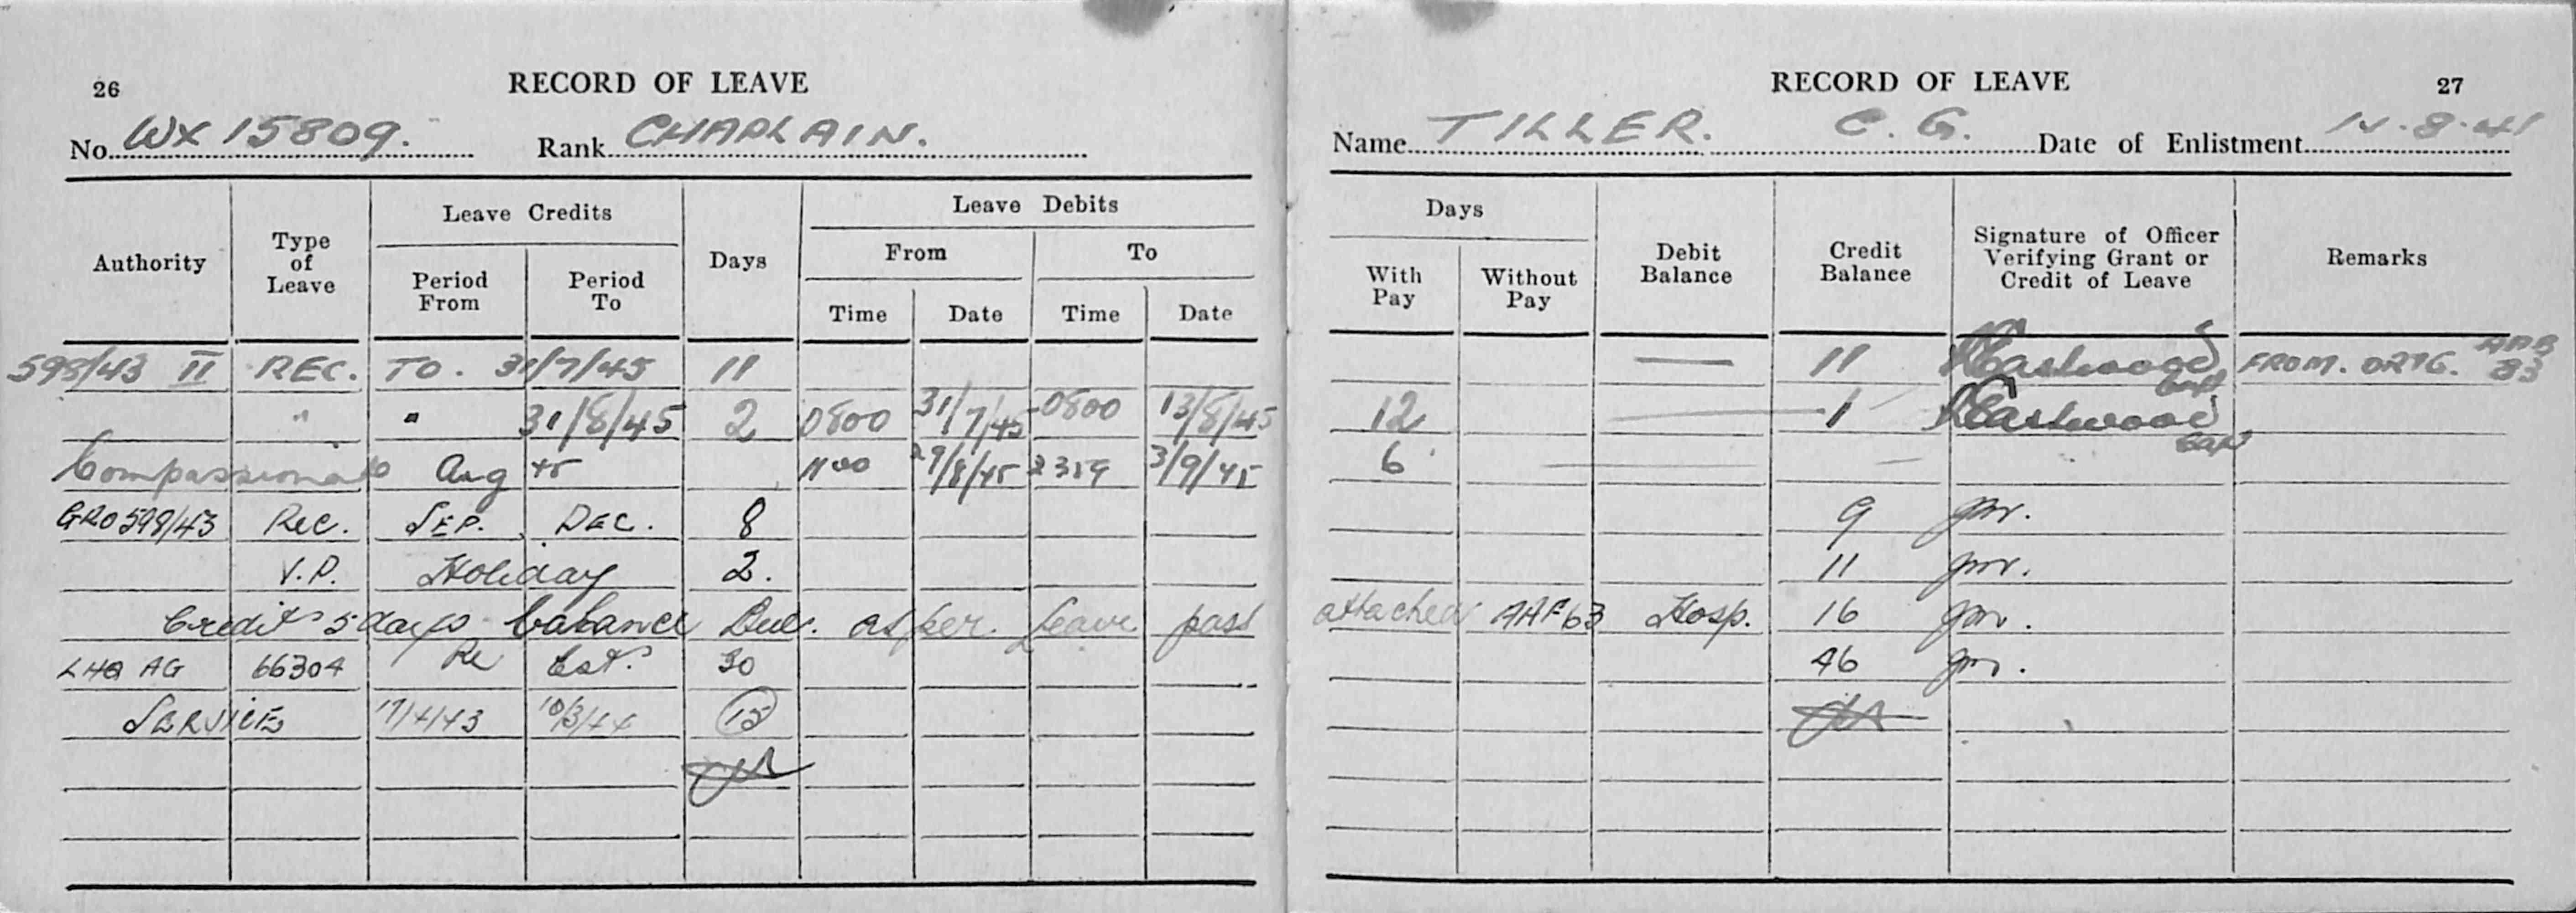 26 RECORD OF LEAVE
No. WX 15809. Rank CHAPLAIN.
Authority Type of Leave Leave Credits Days Leave Debits
Period From Period To From To
Time Date Time Date
598/43 II REC. TO. 31/7/45 11
" " 31/8/45 2 0800 31/7/45 0800 13/8/45
Compassionate Aug 45 1100 29/8/45 2359 3/9/45
GRO 598/43 Rec. SEP. DEC. 8
V.P. Holiday 2.
Credit 5 days balance Due. as per leave pass
LHQ AG 66304 Re Est. 30
SERVICE 17/4/43 10/3/44 15
RECORD OF LEAVE 27
Name TILLER. C. G. Date of Enlistment 8.41
Days Debit Balance Credit Balance Signature of Officer Verifying Grant or Credit of Leave Remarks
With Pay Without Pay
— 11 Eastwood Capt FROM. ORIG. AAB 83
12 — 1 Eastwood Capt
6 — —
9
11
attached AAF 63 Hosp. 16
46